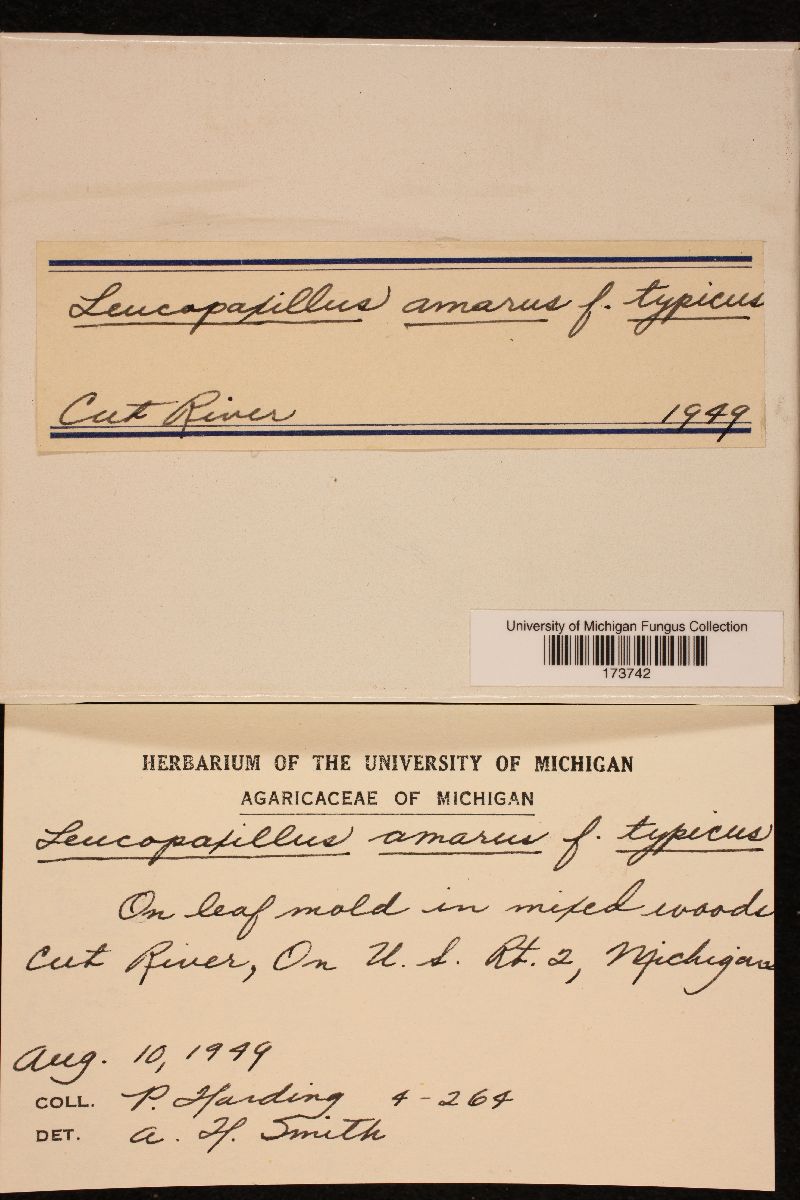 Leucopaxillus amarus f. typicus
Cut River 1949
University of Michigan Fungus Collection
173742
HERBARIUM OF THE UNIVERSITY OF MICHIGAN
AGARICACEAE OF MICHIGAN
Leucopaxillus amarus f. typicus
On leaf mold in mixed woods
Cut River, On U. S. Rt. 2, Michigan
Aug. 10, 1949
COLL. P. Harding 4-264
DET. A. H. Smith